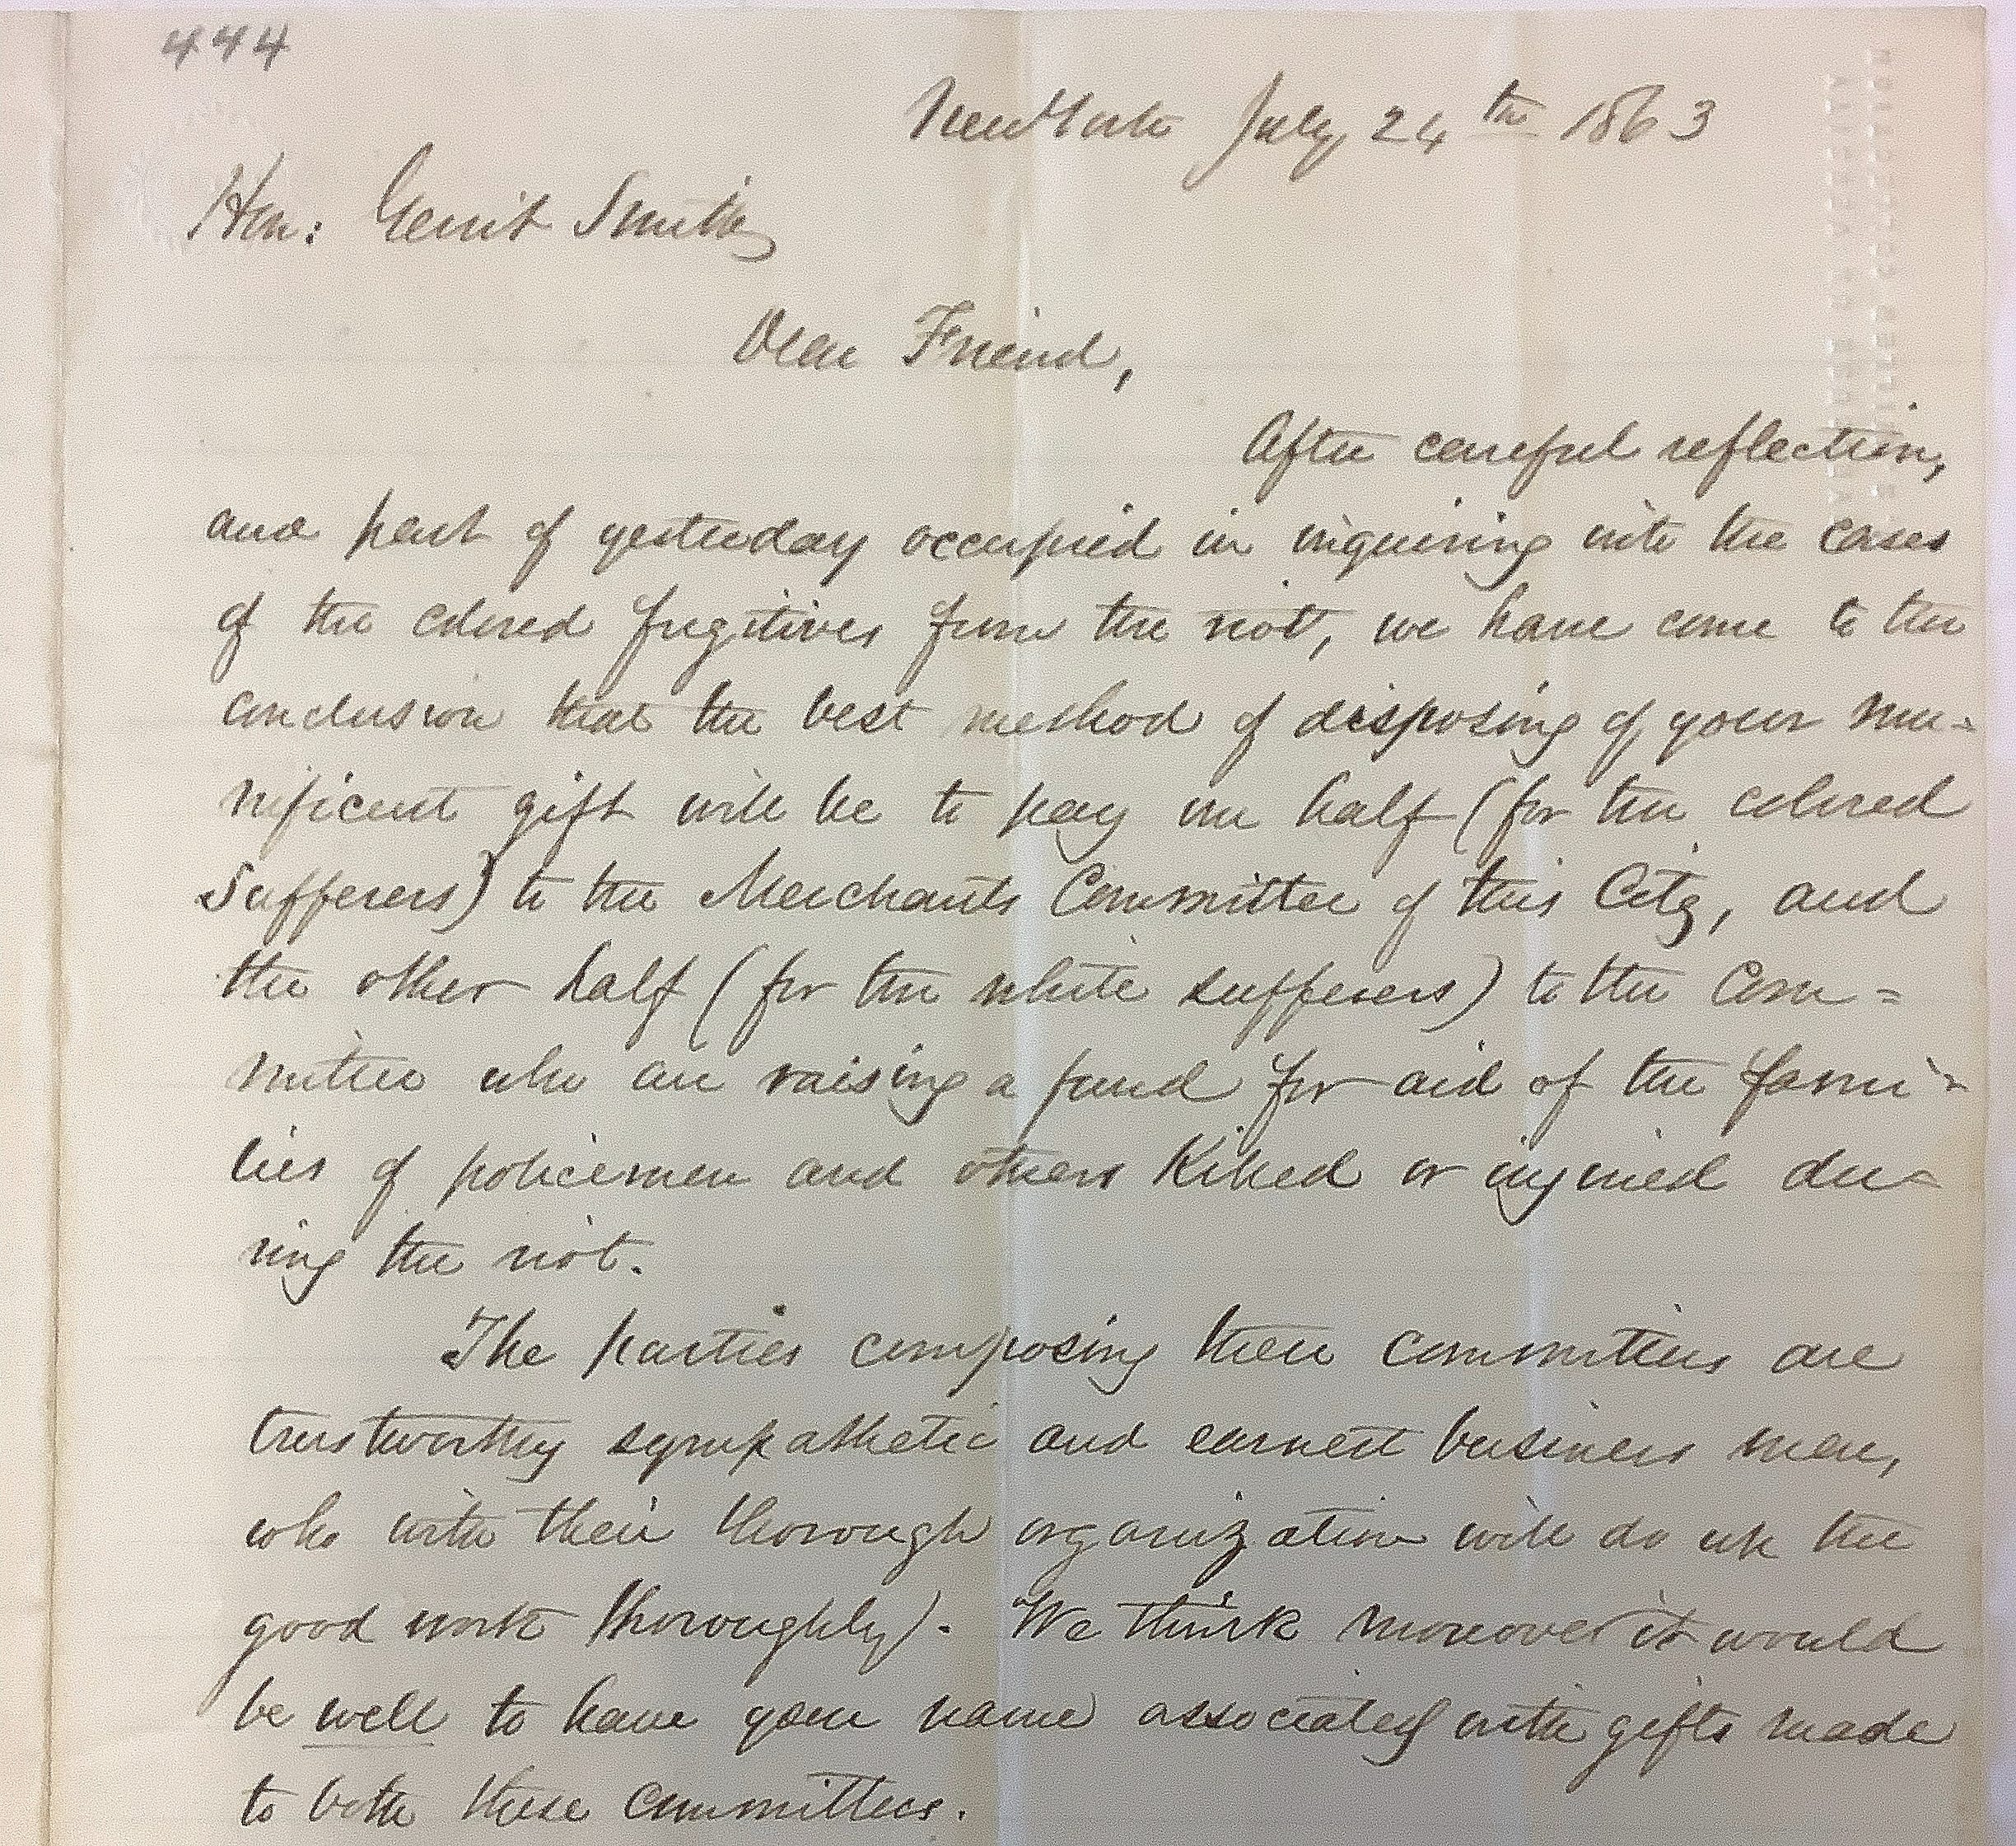 444
New York July 24th 1863
Hon: Gerrit Smith
Dear Friend,
After careful reflection,
and part of yesterday occupied in inquiring into the cases
of the colored fugitives from the riot, we have come to the
conclusion that the best method of disposing of your mu=
nificent gift will be to pay one half (for the colored
Sufferers) to the Merchants Committee of this City, and
the other half (for the white sufferers) to the Com=
mittee who are raising a fund for aid of the fami=
lies of policemen and others Killed or injured du=
ring the riot.
The parties composing these committees are
trustworthy sympathetic and earnest business men,
who with their thorough organization will do up the
good work thoroughly. We think moreover it would
be well to have your name associated with gifts made
to both these committees.